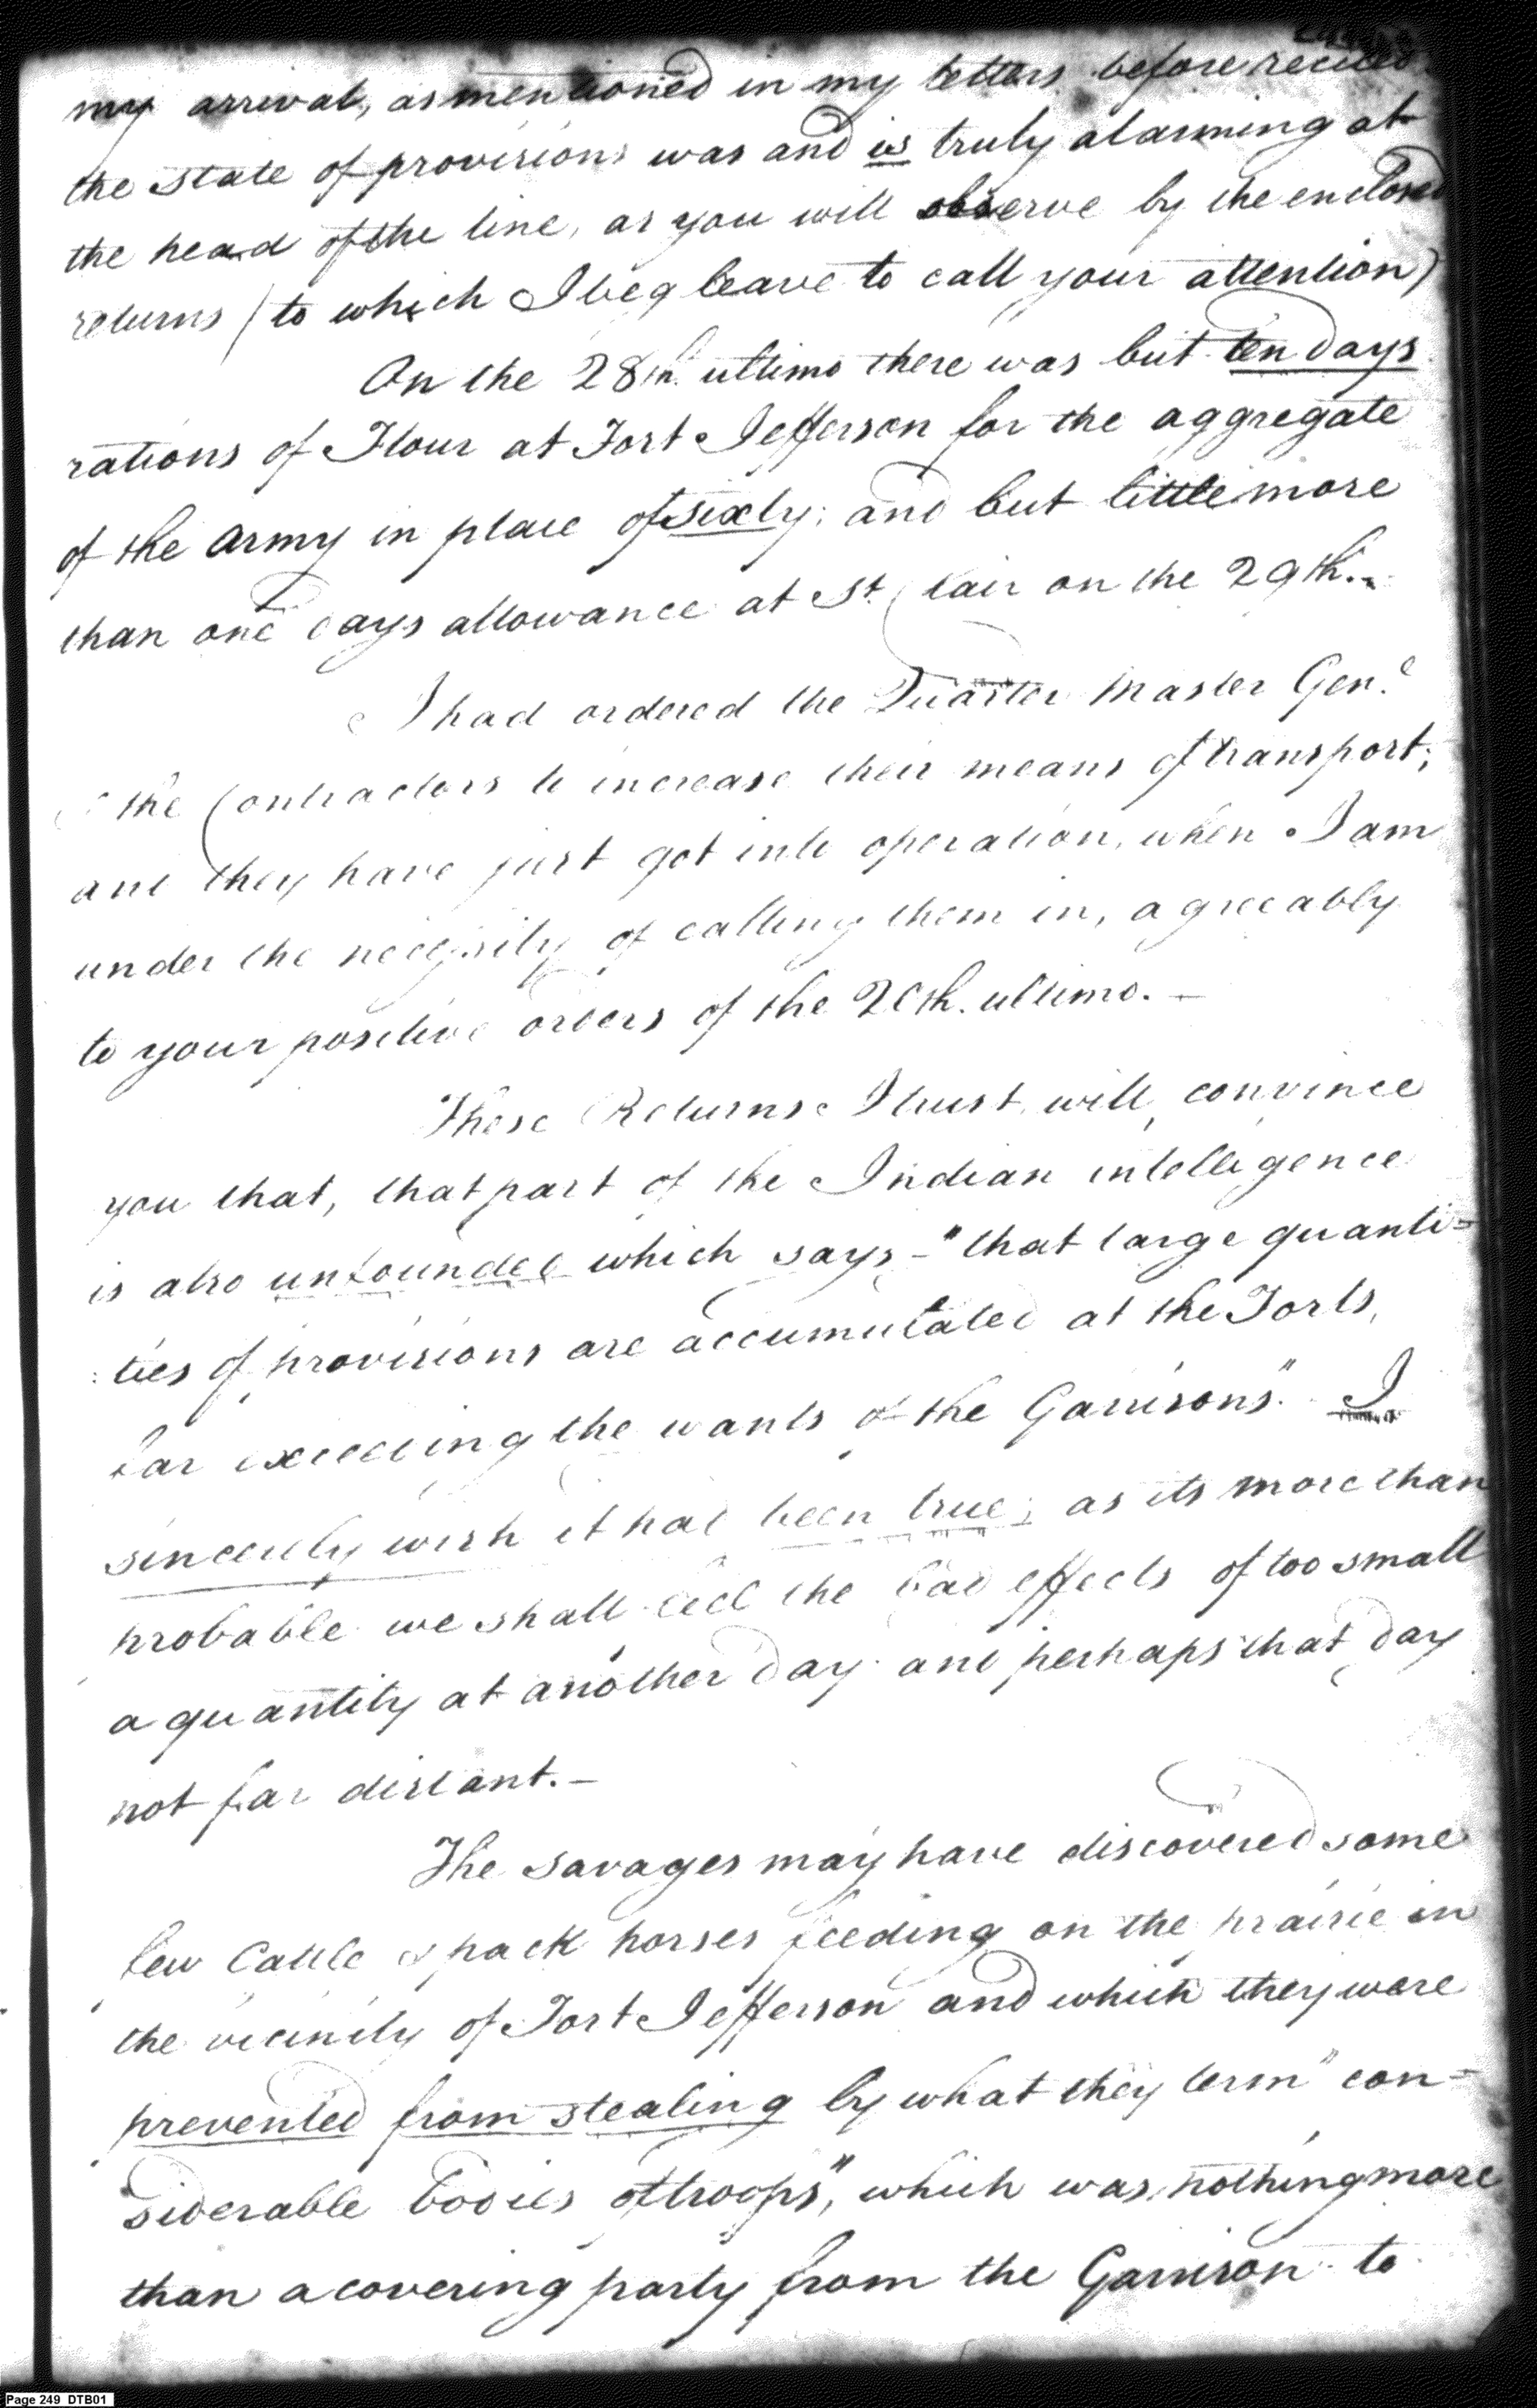 my arrival, as mentioned in my letters before recited
the state of provisions was and is truly alarming at
the head of the line, as you will observe by the enclosed
returns (to which I beg leave to call your attention)
On the 28th. ultimo there was but ten days
rations of Flour at Fort Jefferson for the aggregate
of the army in place of sixty; and but little more
than one days allowance at St. Clair on the 29th.
I had ordered the Quarter Master Genl.
& the Contractors to increase their means of transport;
and they have just got into operation, when I am
under the necessity of calling them in, agreeably
to your positive orders of the 20th. ultimo. —
These Returns I trust will convince
you that, that part of the Indian intelligence
is also unfounded which says - "that large quanti=
:ties of provisions are accumulated at the Forts,
far exceeding the wants of the Garrisons". I
sincerely wish it had been true; as its more than
probable we shall feel the bad effects of too small
a quantity at another day and perhaps that day
not far distant. —
The savages may have discovered some
few Cattle & pack horses feeding on the prairie in
the vicinity of Fort Jefferson and which they ware
prevented from stealing by what they term "con=
siderable bodies of troops", which was nothing more
than a covering party from the Garrison to
Page 249 DTB01